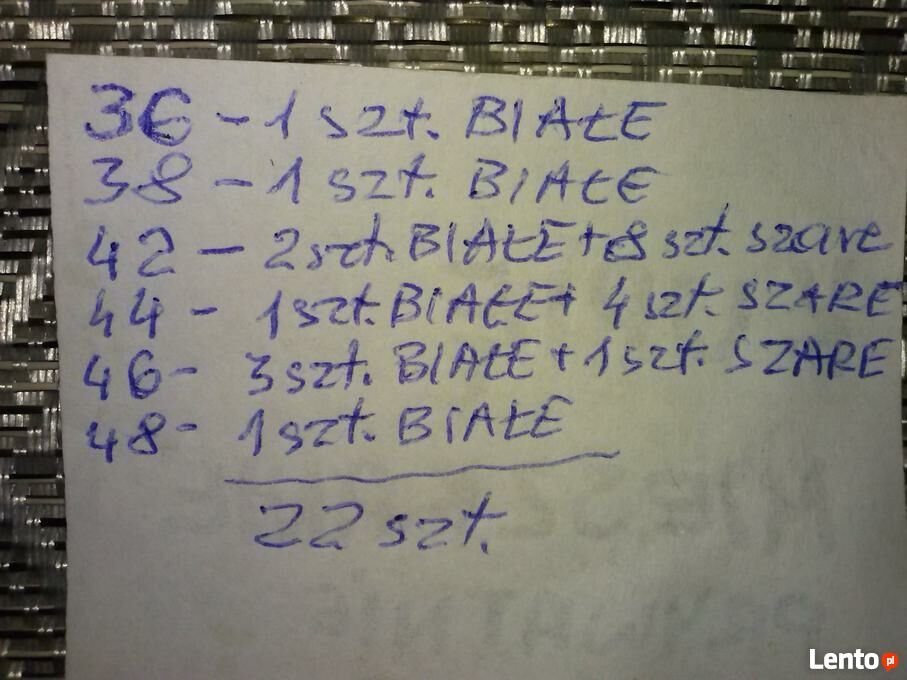 36 - 1 szt. BIAŁE
38 - 1 szt. BIAŁE
42 - 2 szt. BIAŁE + 8 szt. szare
44 - 1 szt. BIAŁE + 4 szt. SZARE
46 - 3 szt. BIAŁE + 1 szt. SZARE
48 - 1 szt. BIAŁE
22 szt.
Lento pl